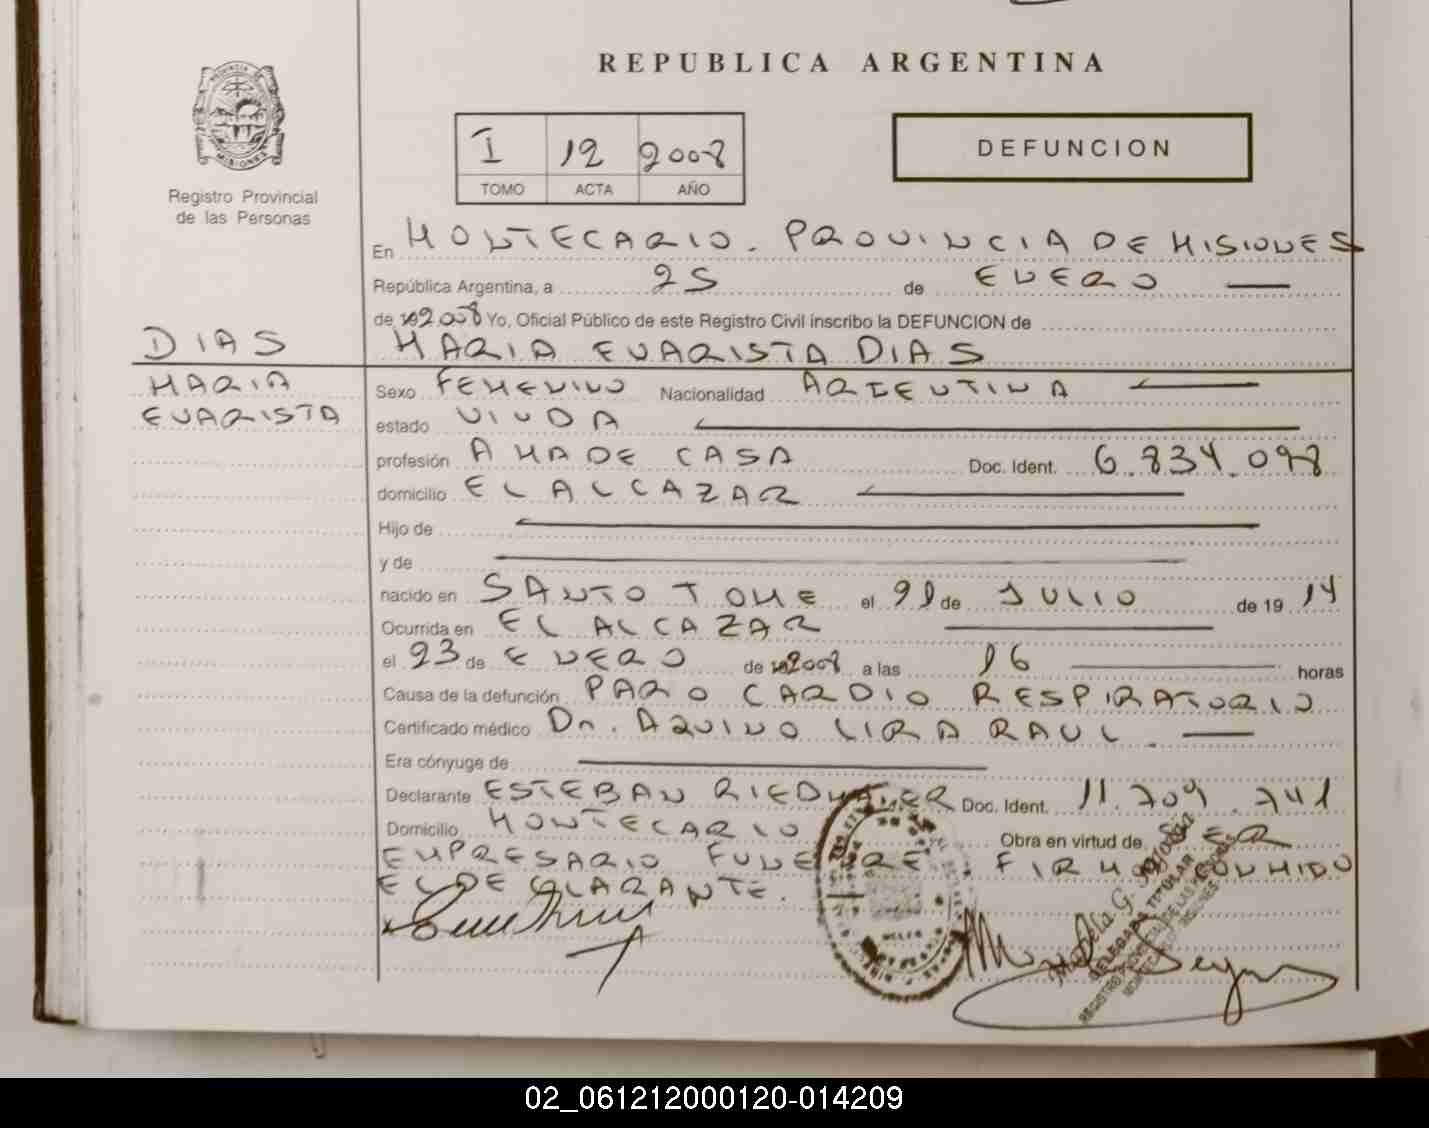 REPUBLICA ARGENTINA
PROVINCIA DE
MISIONES
Registro Provincial
de las Personas
I 12 2008
TOMO ACTA AÑO
DEFUNCION
En MONTECARLO. PROVINCIA DE MISIONES
República Argentina, a 25 de ENERO
de 2.008 Yo, Oficial Público de este Registro Civil inscribo la DEFUNCION de
DIAS MARIA EVARISTA DIAS
MARIA
EVARISTA
Sexo FEMENINO Nacionalidad ARGENTINA
estado VIUDA
profesión AMA DE CASA Doc. Ident. 6.834.098
domicilio EL ALCAZAR
Hijo de
y de
nacido en SANTO TOME el 21 de JULIO de 19 14
Ocurrida en EL ALCAZAR
el 23 de ENERO de 2008 a las 16 horas
Causa de la defunción PARO CARDIO RESPIRATORIO
Certificado médico Dr. AQUINO LIRA RAUL.
Era cónyuge de
Declarante ESTEBAN Doc. Ident. 11.709.741
Domicilio MONTECARLO Obra en virtud de SER
EMPRESARIO FUNEBRE. FIRMA CONMIGO
EL DECLARANTE.
DELEGADA TITULAR
REGISTRO PROVINCIAL DE LAS PERSONAS
02_061212000120-014209